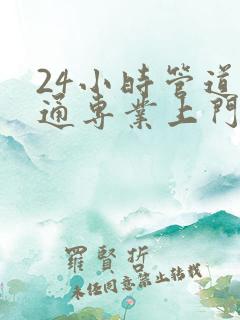 24小時管道
通專業上門
羅賢折
未任同意禁止转载